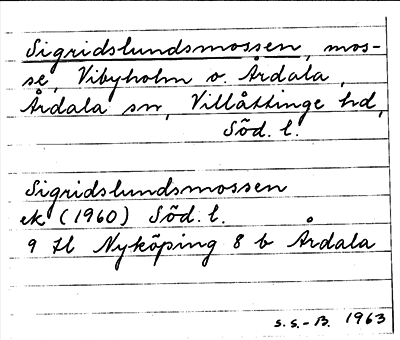 Sigridslundsmossen, mos-
se, Vibyholm o. Årdala,
Årdala sn, Villåttinge hd,
Söd. l.
Sigridslundsmossen
ek (1960) Söd. l.
9 H Nyköping 8 b Årdala
S.S.-B. 1963